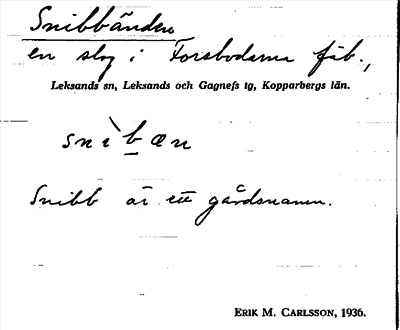 Snibbänden
en slog i Forsbodarna fäb.,
Leksands sn, Leksands och Gagnefs tg, Kopparbergs län.
snìbæn
Snibb är ett gårdsnamn.
ERIK M. CARLSSON, 1936.